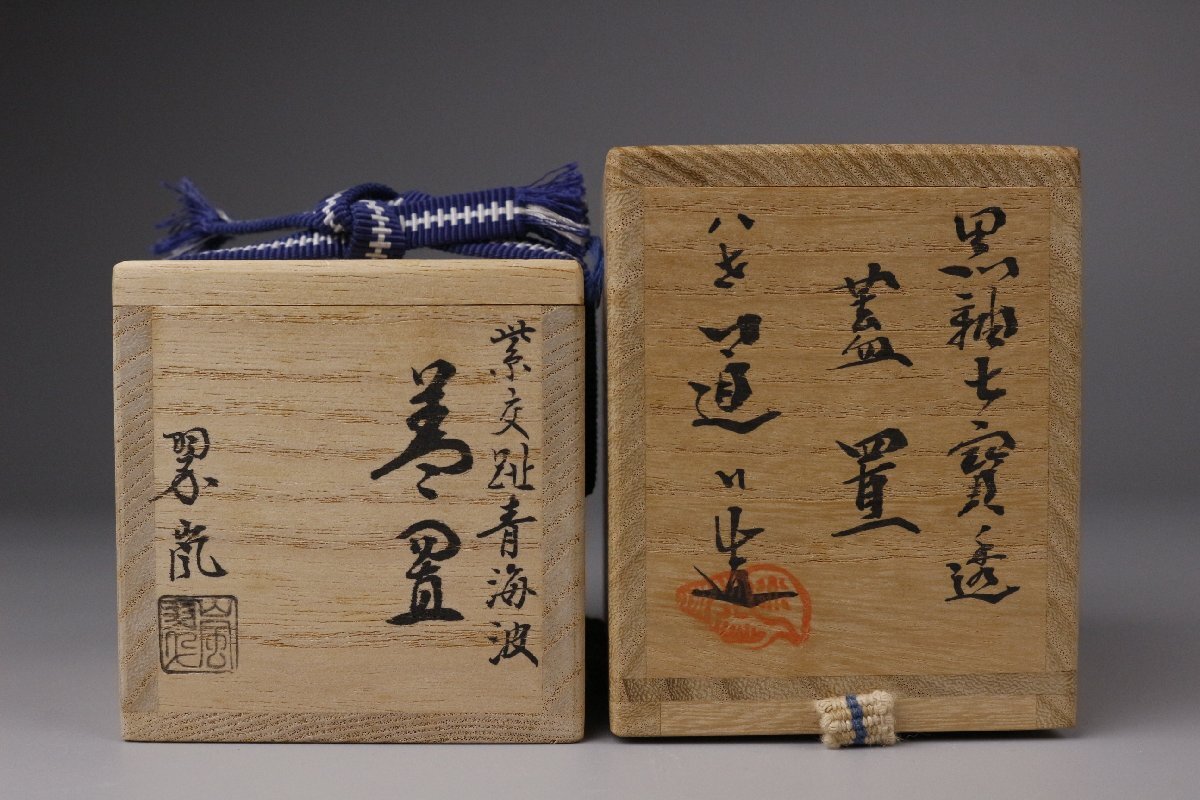 黒釉七寶透
蓋置
八世道八造
紫交趾青海波
蓋置
翠嵐